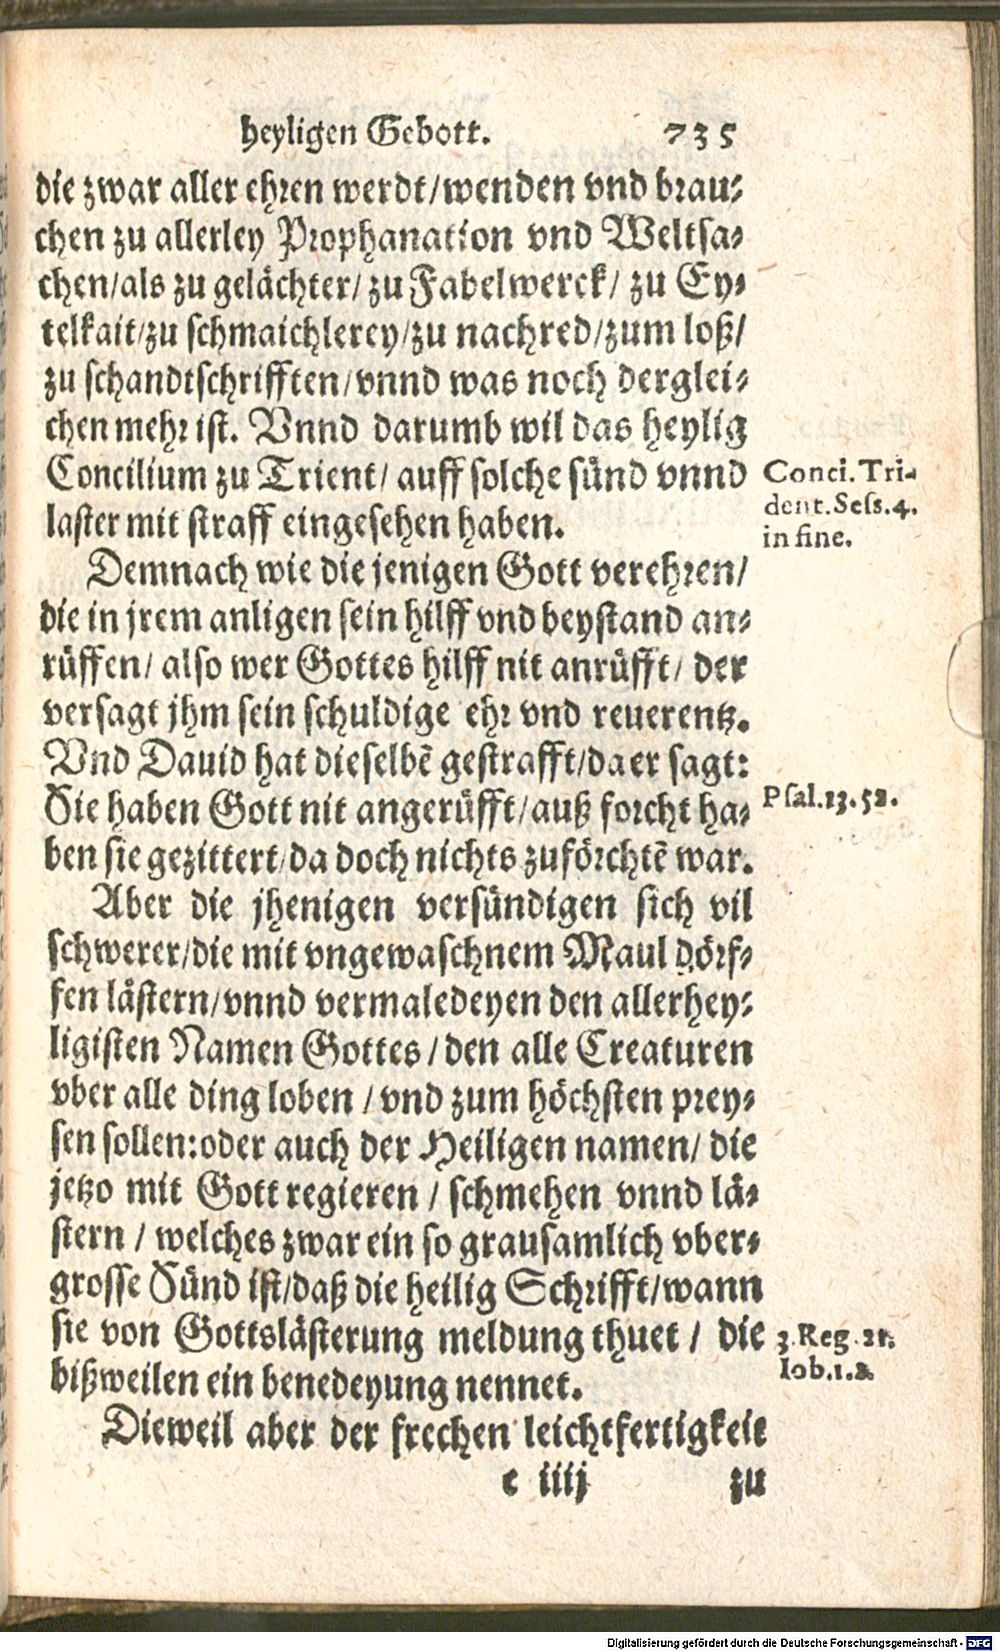 heyligen Gebott. 735
die zwar aller ehren werdt/wenden vnd brau-
chen zu allerley Prophanation vnd Weltsa-
chen/als zu gelächter/zu Fabelwerck/ zu Ey-
telkait/zu schmaichlerey/zu nachred/zum loß/
zu schandtschrifften/vnnd was noch derglei-
chen mehr ist. Vnnd darumb wil das heylig
Concilium zu Trient/ auff solche sünd vnnd
Conci. Tri-
dent. Sess. 4.
in fine.
laster mit straff eingesehen haben.
Demnach wie die jenigen Gott verehren/
die in jrem anligen sein hilff vnd beystand an-
rüffen/ also wer Gottes hilff nit anrüfft/ der
versagt jhm sein schuldige ehr vnd reuerentz.
Vnd Dauid hat dieselbē gestrafft/da er sagt:
Sie haben Gott nit angerüfft/auß forcht ha-
Psal. 13. 52.
ben sie gezittert/da doch nichts zuförchtē war.
Aber die jhenigen versündigen sich vil
schwerer/die mit vngewaschnem Maul dörf-
fen lästern/vnnd vermaledeyen den allerhey-
ligisten Namen Gottes/den alle Creaturen
vber alle ding loben/vnd zum höchsten prey-
sen sollen:oder auch der Heiligen namen/ die
jetzo mit Gott regieren/ schmehen vnnd lä-
stern/ welches zwar ein so grausamlich vber-
grosse Sünd ist/daß die heilig Schrifft/wann
sie von Gottslästerung meldung thuet/ die
3. Reg. 21.
Iob. 1. 2.
bißweilen ein benedeyung nennet.
Dieweil aber der frechen leichtfertigkeit
c iiij zu
Digitalisierung gefördert durch die Deutsche Forschungsgemeinschaft - DFG